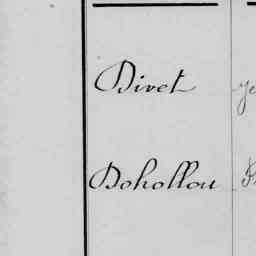 Divet
Dohollou